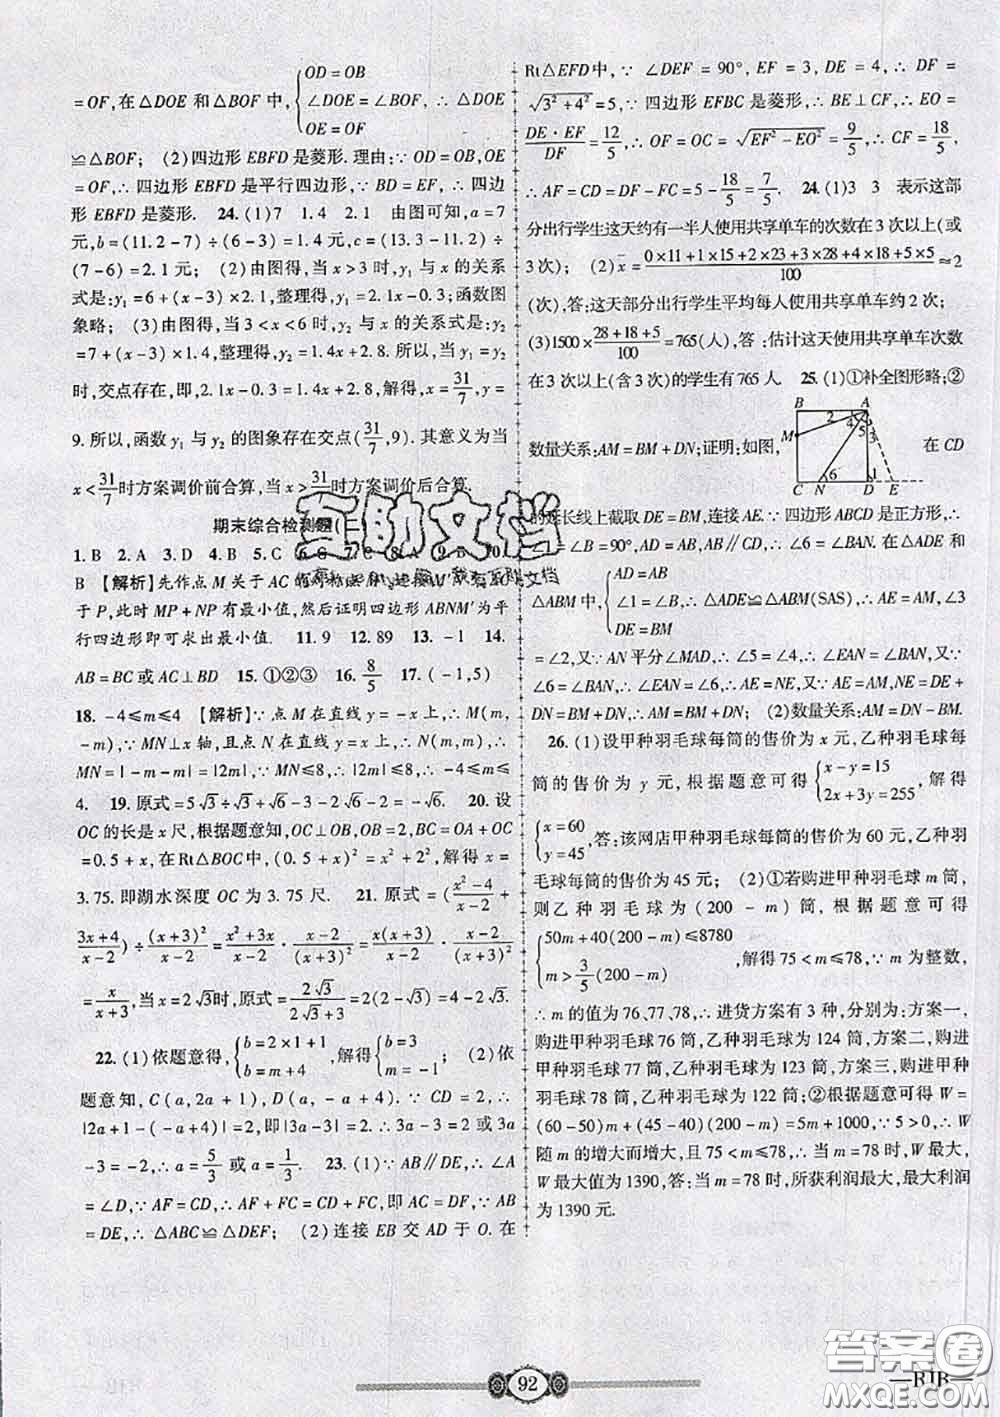 = OF,在△DOE 和△BOF 中,{OD = OB
∠DOE = ∠BOF, ∴ △DOE
OE = OF
≌△BOF; (2)四边形 EBFD 是菱形. 理由:∵ OD = OB,OE
= OF,∴ 四边形 EBFD 是平行四边形,∵ BD = EF, ∴ 四边
形 EBFD 是菱形. 24. (1)7 1.4 2.1 由图可知, a = 7
元,b = (11.2 - 7) ÷ (6 - 3) = 1.4 元,c = (13.3 - 11.2) ÷
(7 - 6) = 2.1 元; (2)由图得,当 x > 3 时,y₁ 与 x 的关系
式是:y₁ = 6 + (x - 3) × 2.1,整理得,y₁ = 2.1x - 0.3;函数图
象略; (3)由图得,当 3 < x < 6 时,y₂ 与 x 的关系式是:y₂
= 7 + (x - 3) × 1.4,整理得,y₂ = 1.4x + 2.8. 所以,当 y₁ = y₂
时,交点存在,即,2.1x - 0.3 = 1.4x + 2.8,解得,x = 31/7,y =
9. 所以,函数 y₁ 与 y₂ 的图象存在交点(31/7,9). 其意义为当
x < 31/7 时方案调价前合算,当 x > 31/7 时方案调价后合算.
期末综合检测题(二)
1. B 2. A 3. D 4. B 5. C
B 【解析】先作点 M 关于 AC 的
于 P,此时 MP + NP 有最小值,然后证明四边形 ABNM′为平
行四边形即可求出最小值. 11. 9 12. 89 13. -1 14.
AB = BC 或 AC ⊥ BD 15. ①②③ 16. 8/5 17. (-1,5)
18. -4≤m≤4 【解析】∵ 点 M 在直线 y = -x 上,∴ M(m,
-m),∵ MN⊥x 轴,且点 N 在直线 y = x 上,∴ N(m,m),∴
MN = |-m-m| = |2m|,∵ MN≤8,∴ |2m|≤8,∴ -4≤m≤
4. 19. 原式 = 5√3÷√3+√6-3-2√6-2 = -√6. 20. 设
OC 的长是 x 尺,根据题意知,OC⊥OB,OB = 2,BC = OA + OC
= 0.5 + x,在 Rt△BOC 中,(0.5 + x)² = x² + 2²,解得 x =
3.75. 即湖水深度 OC 为 3.75 尺. 21. 原式 = ((x²-4)/(x-2) +
(3x+4)/(x-2)) ÷ (x+3)²/(x-2) = (x²+3x)/(x-2) · (x-2)/(x+3)² = x(x+3)/(x-2) · (x-2)/(x+3)²
= x/(x+3),当 x = 2√3时,原式 = 2√3/(2√3+3) = 2(2-√3) = 4-2√3.
22. (1)依题意得,{b = 2×1+1
b = -m+4,解得{b = 3
m = -1; (2)依
题意知,C(a,2a+1),D(a,-a+4). ∵ CD = 2,∴
|2a+1-(-a+4)| = 2,即|3a-3| = 2. ∴ 3a-3 = 2 或 3a
-3 = -2,∴ a = 5/3 或 a = 1/3. 23. (1)∵ AB∥DE,∴ ∠A
= ∠D,∵ AF = CD,∴ AF + FC = CD + FC,即 AC = DF,∵ AB =
DE,∴ △ABC≌△DEF; (2)连接 EB 交 AD 于 O. 在
Rt△EFD中,∵ ∠DEF = 90°,EF = 3,DE = 4,∴ DF =
√(3²+4²) = 5,∵ 四边形 EFBC 是菱形,∴ BE⊥CF,∴ EO =
DE·EF/DF = 12/5,∴ OF = OC = √(EF²-EO²) = 9/5,∴ CF = 18/5,
∴ AF = CD = DF-FC = 5-18/5 = 7/5. 24. (1)3 3 表示这部
分出行学生这天约有一半人使用共享单车的次数在 3 次以上(或
3 次); (2)x̄ = (0×11+1×15+2×23+3×28+4×18+5×5)/100 ≈ 2
(次),答:这天部分出行学生平均每人使用共享单车约 2 次;
(3)1500×(28+18+5)/100 = 765(人),答:估计这天使用共享单车次数
在 3 次以上(含 3 次)的学生有 765 人 25. (1)①补全图形略;②
数量关系:AM = BM + DN;证明:如图, 在 CD
B A M 2 4 5 3 6 1 C N D E
的延长线上截取 DE = BM,连接 AE. ∵ 四边形 ABCD 是正方形,∴
∠1 = ∠B = 90°,AD = AB,AB∥CD,∴ ∠6 = ∠BAN. 在△ADE 和
△ABM 中,{AD = AB
∠1 = ∠B, ∴ △ADE≌△ABM(SAS),∴ AE = AM,∠3
DE = BM
= ∠2,又∵ AN 平分∠MAD,∴ ∠5 = ∠4,∴ ∠EAN = ∠BAN,又∵
∠6 = ∠BAN,∴ ∠EAN = ∠6,∴ AE = NE,又∵ AM,NE = DE +
DN = BM + DN,∴ AM = BM + DN; (2)数量关系:AM = DN-BM.
26. (1)设甲种羽毛球每筒的售价为 x 元,乙种羽毛球每
筒的售价为 y 元,根据题意可得{x-y = 15
2x+3y = 255,解得
{x = 60
y = 45,答:该网店甲种羽毛球每筒的售价为 60 元,乙种羽
毛球每筒的售价为 45 元; (2)①若购进甲种羽毛球 m 筒,
则乙种羽毛球为(200-m)筒,根据题意可得
{50m+40(200-m)≤8780
m > 3/5(200-m),解得 75 < m≤78,∵ m 为整数,
∴ m 的值为 76、77、78,∴ 进货方案有 3 种,分别为:方案一,
购进甲种羽毛球 76 筒,乙种羽毛球为 124 筒,方案二,购进
甲种羽毛球 77 筒,乙种羽毛球为 123 筒,方案三,购进甲种羽
毛球 78 筒,乙种羽毛球为 122 筒;②根据题意可得 W =
(60-50)m+(45-40)(200-m) = 5m+1000,∵ 5 > 0,∴ W
随 m 的增大而增大,且 75 < m≤78,∴ 当 m = 78 时,W 最大,
W 最大值为 1390,答:当 m = 78 时,所获利润最大,最大利润
为 1390 元.
互助文档
92
—RJB—
答案圈
MXQE.COM